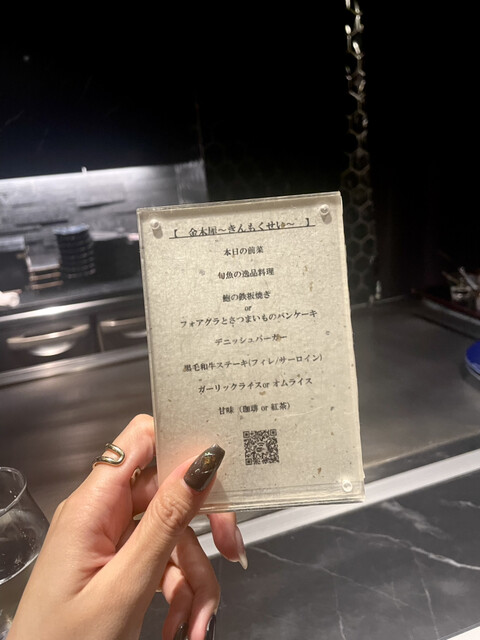 【 金木犀～きんもくせい～ 】
本日の前菜
旬魚の逸品料理
鮑の鉄板焼き
or
フォアグラとさつまいものパンケーキ
デニッシュバーガー
黒毛和牛ステーキ(フィレ/サーロイン)
ガーリックライスor オムライス
甘味（珈琲 or 紅茶）